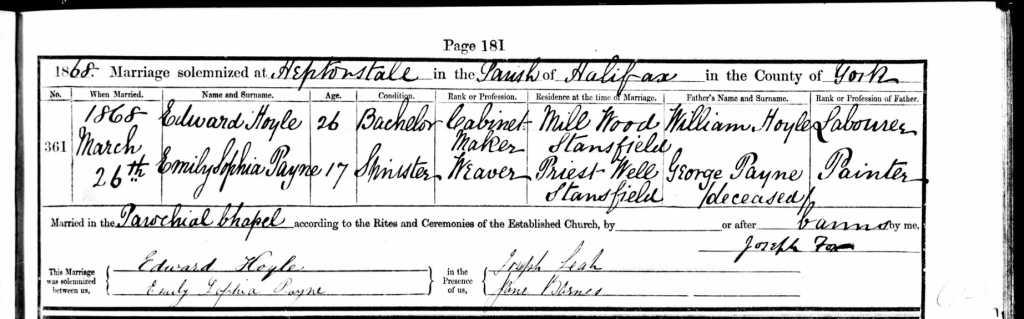 Page 181
1868. Marriage solemnized at Heptonstall in the Parish of Halifax in the County of York
No. When Married. Name and Surname. Age. Condition. Rank or Profession. Residence at the time of Marriage. Father's Name and Surname. Rank or Profession of Father.
361 1868 March 26th
Edward Hoyle 26 Bachelor Cabinet Maker Mill Wood Stansfield William Hoyle Labourer
Emily Sophia Payne 17 Spinster Weaver Priest Well Stansfield George Payne (deceased) Painter
Married in the Parochial Chapel according to the Rites and Ceremonies of the Established Church, by or after banns by me,
Joseph Fox
This Marriage was solemnized between us, { Edward Hoyle } in the Presence of us, { Joseph Leah }
Emily Sophia Payne Jane Barnes